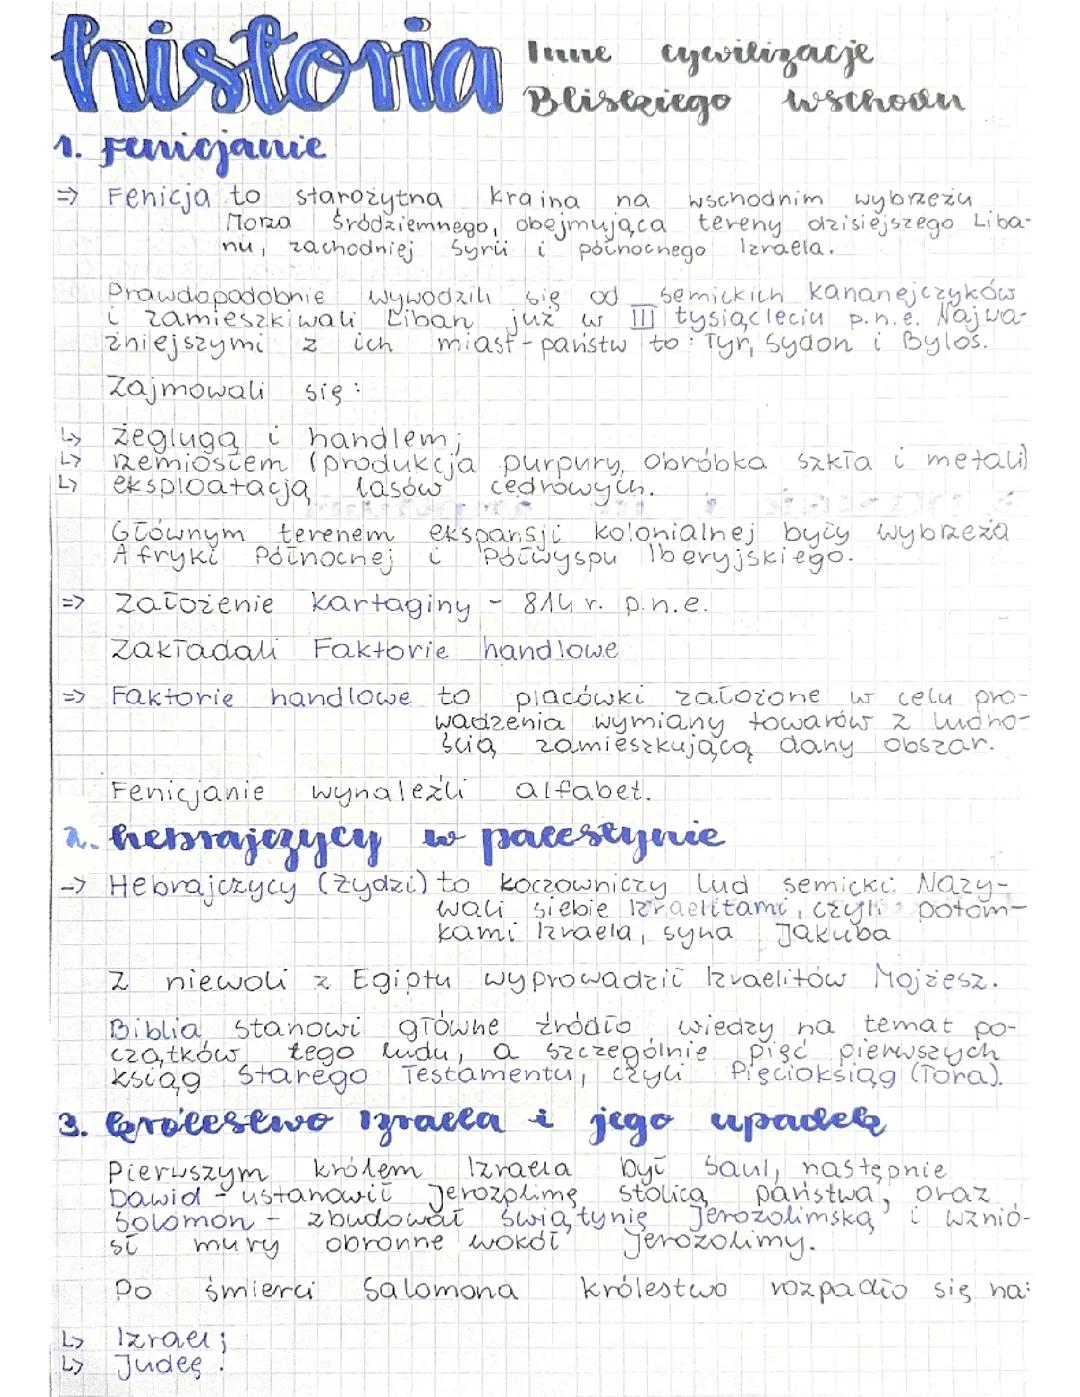 historia
Inne cywilizacje
Bliskiego wschodu
1. Fenicjanie
=> Fenicja to starożytna kraina na wschodnim wybrzeżu
Morza Śródziemnego, obejmująca tereny dzisiejszego Liba-
nu, zachodniej Syrii i północnego Izraela.
Prawdopodobnie wywodzili się od semickich kananejczyków
i zamieszkiwali Liban już w III tysiącleciu p.n.e. Najwa-
żniejszymi z ich miast-państw to: Tyr, Sydon i Bylos.
Zajmowali się:
↳ żeglugą i handlem;
↳ rzemiosłem (produkcja purpury, obróbka szkła i metali)
↳ eksploatacją lasów cedrowych.
Głównym terenem ekspansji kolonialnej były wybrzeża
Afryki Północnej i Półwyspu Iberyjskiego.
=> Założenie Kartaginy - 814 r. p.n.e.
Zakładali Faktorie handlowe
=> Faktorie handlowe to placówki założone w celu pro-
wadzenia wymiany towarów z ludno-
ścią zamieszkującą dany obszar.
Fenicjanie wynaleźli alfabet.
2. hebrajczycy w palestynie
-> Hebrajczycy (Żydzi) to koczowniczy lud semicki. Nazy-
wali siebie Izraelitami, czyli potom-
kami Izraela, syna Jakuba
Z niewoli z Egiptu wyprowadził Izraelitów Mojżesz.
Biblia stanowi główne źródło wiedzy na temat po-
czątków tego ludu, a szczególnie pięć pierwszych
ksiąg Starego Testamentu, czyli Pięcioksiąg (Tora).
3. królestwo Izraela i jego upadek
Pierwszym królem Izraela był Saul, następnie
Dawid - ustanowił Jerozolimę stolicą państwa, oraz
Solomon - zbudował świątynię Jerozolimską i wznió-
sł mury obronne wokół Jerozolimy.
Po śmierci Salomona królestwo rozpadło się na:
↳ Izrael;
↳ Judeę.